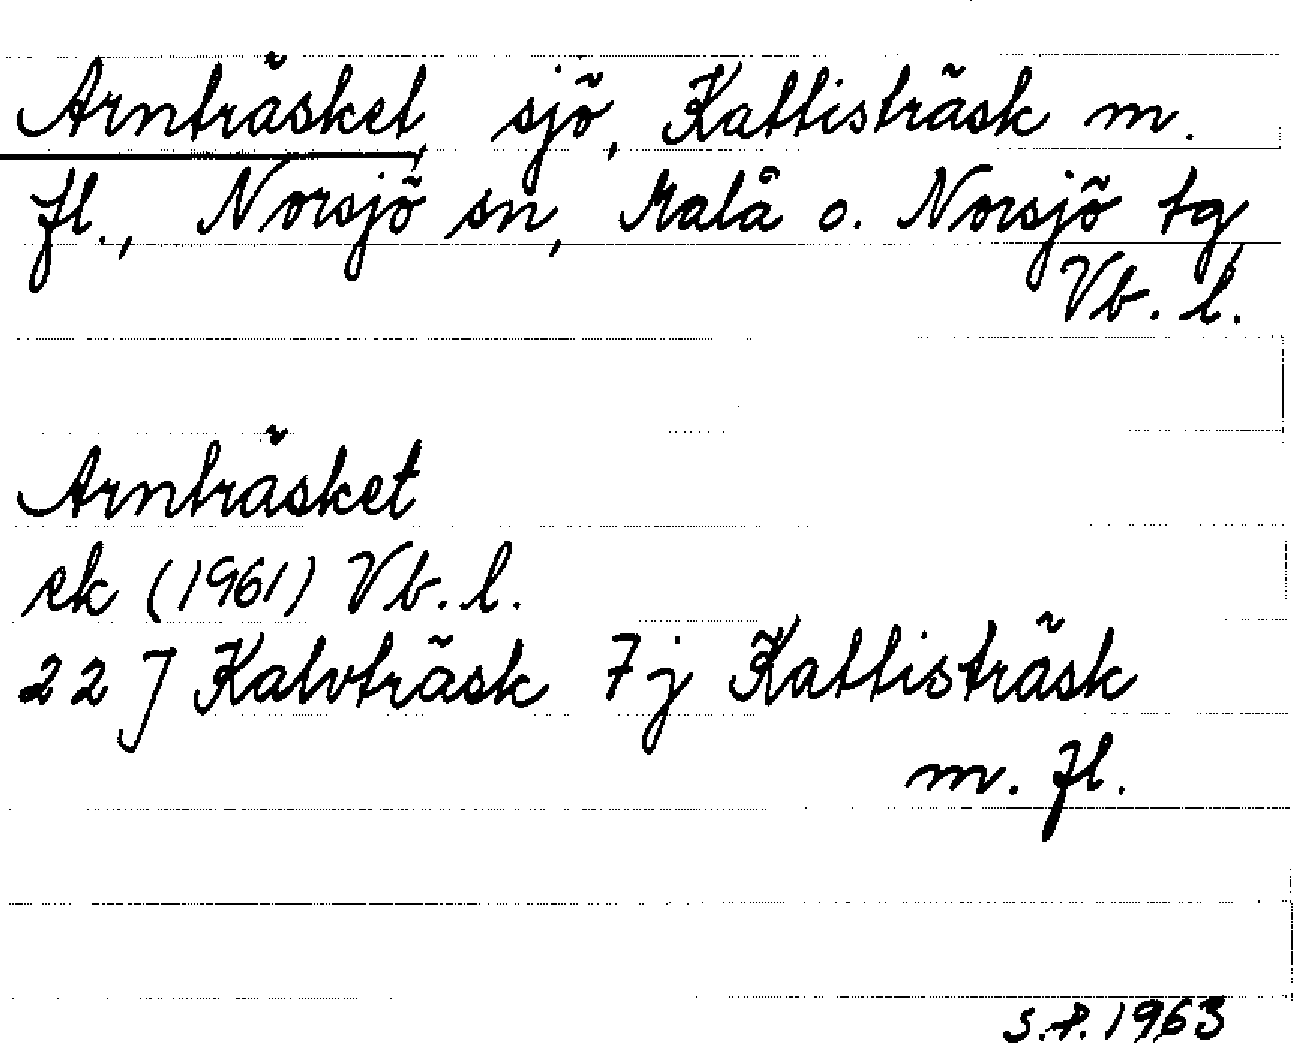 Arnträsket, sjö, Kattisträsk m.
fl., Norsjö sn, Malå o. Norsjö tg,
Vb. l.
Arnträsket
ek (1961) Vb. l.
22 J Kalvträsk 7j Kattisträsk
m. fl.
S.P. 1963